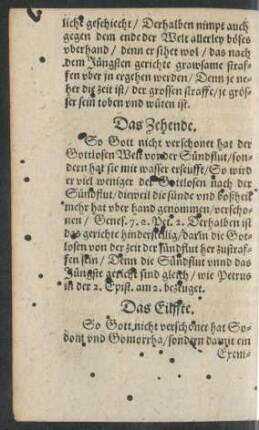 licht geschiecht / Derhalben nimpt auch
gegen dem ende der Welt allerley böses
vberhand / denn er sihet wol / das nach
dem Jüngsten gerichte grawsame straf-
fen vber in ergehen werden / Denn je ne-
her die zeit ist / der grossen straffe / je grös-
ser sein toben vnd wüten ist.
Das Zehende.
So Gott nicht verschonet hat der
Gottlosen Welt von der Sündflut / son-
dern hat sie mit wasser erseufft / So wird
er viel weniger der Gottlosen nach der
Sündflut / dieweil die sünde vnd boßheit
mehr hat vber hand genommen / verscho-
nen / Genes. 7. 2. Pet. 2. Derhalben ist
das gerichte hinderstellig / darin die Got-
losen von der zeit der sündflut her zustraf-
fen sein / Denn die Sündflut vnnd das
Jüngste gericht sind gleich / wie Petrus
in der 2. Epist. am 2. bezeuget.
Das Eilffte.
So Gott nicht verschonet hat So-
dom vnd Gomorrha / sondern damit ein
Exem-